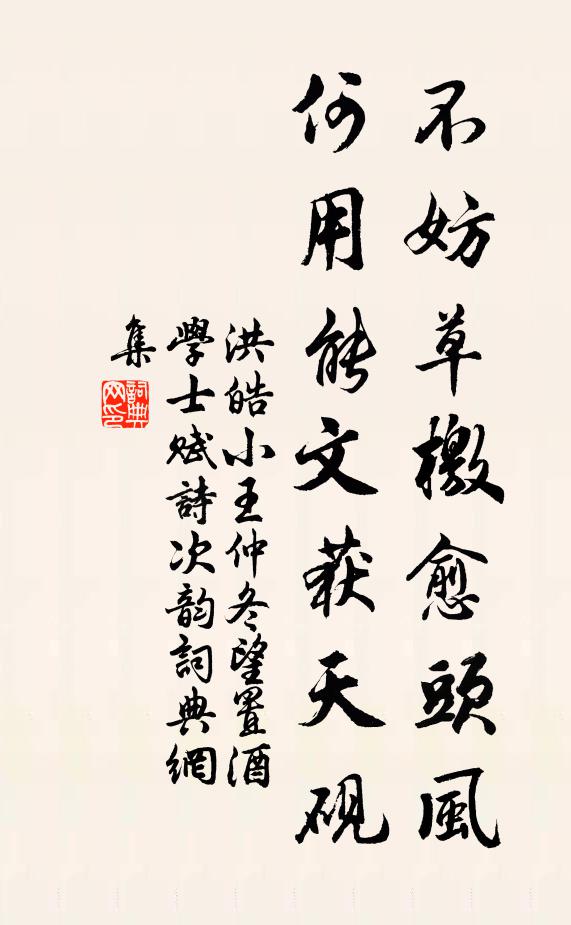 不妨草檄愈頭風
何用能文获天硯
洪皓小王仲冬望置酒
學士赋詩次韵詞典網
集
詞典网印